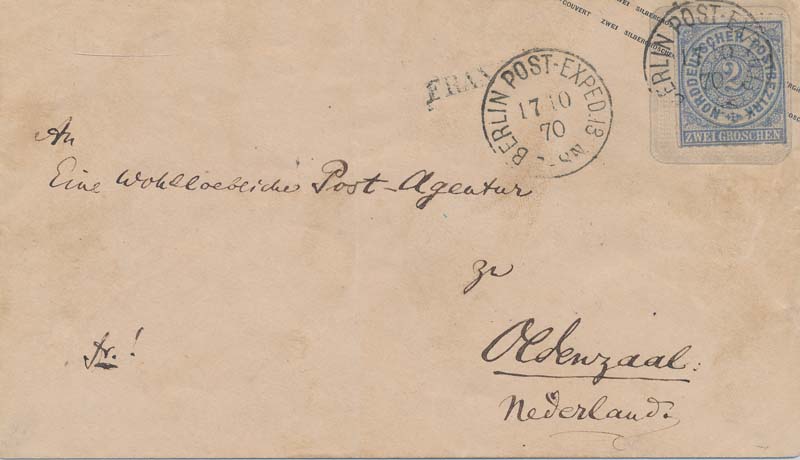 COUVERT ZWEI SILBERGROSCHEN
NORDDEUTSCHER POSTBEZIRK
2
ZWEI GROSCHEN
BERLIN POST-EXPED. 13
17 10
70
FRAN
BERLIN POST-EXP
70
An
Eine Wohlloebliche Post-Agentur
zu
Oldenzaal:
Nederland.
fr.!